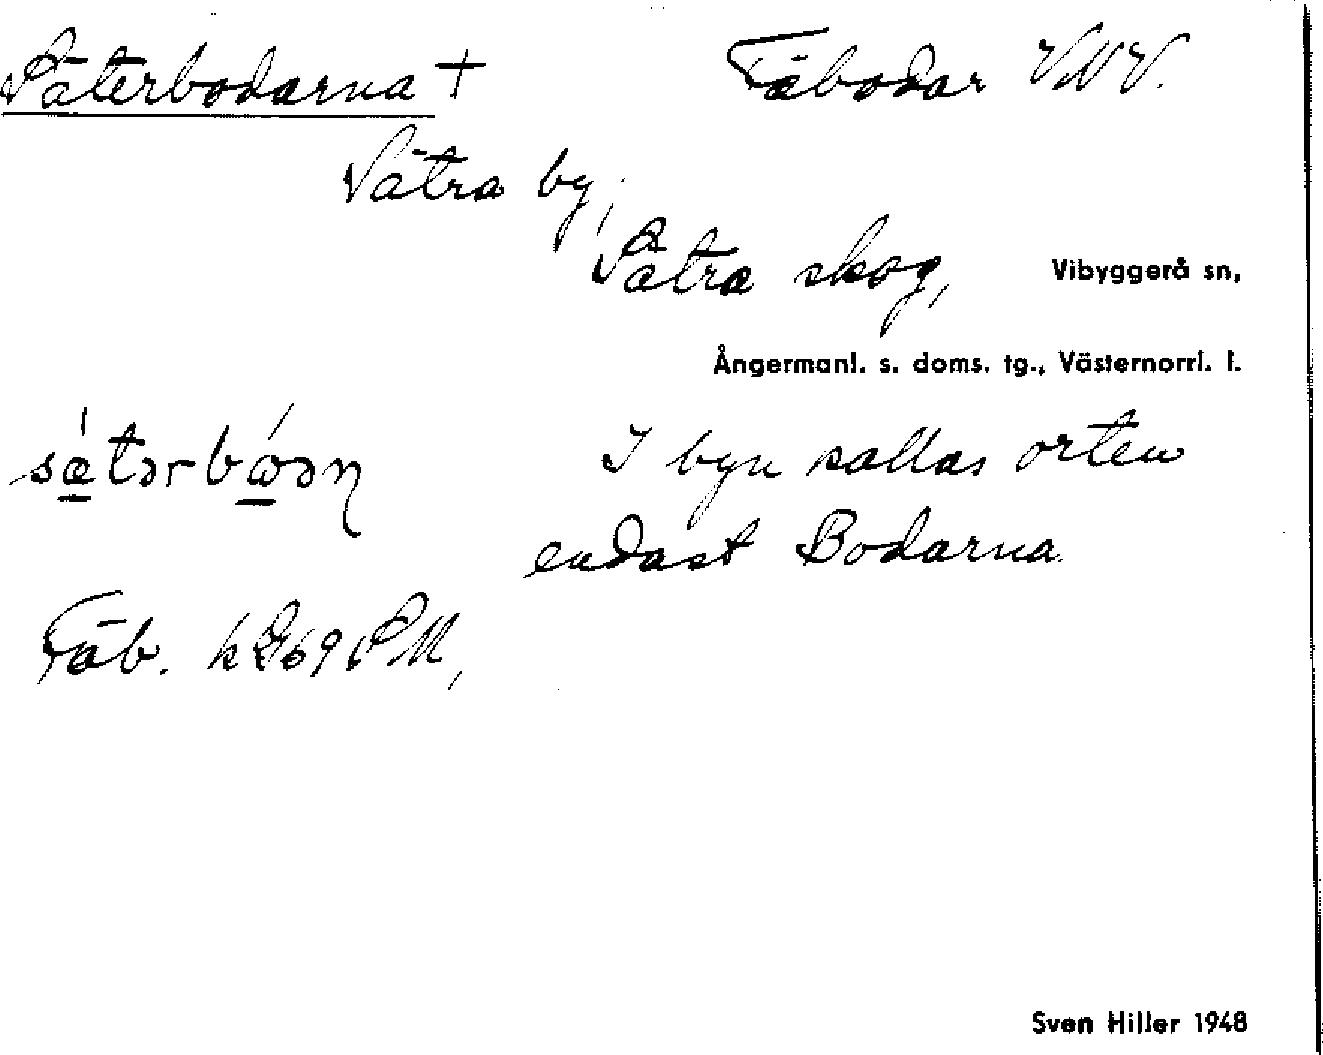 Säterbodarna + Fäbodar VNV.
Sätra by,
Sätra skog, Vibyggerå sn,
Ångermanl. s. doms. tg., Västernorrl. l.
sǽtərbώəɳ I byn kallas orten
endast Bodarna.
Fäb. k